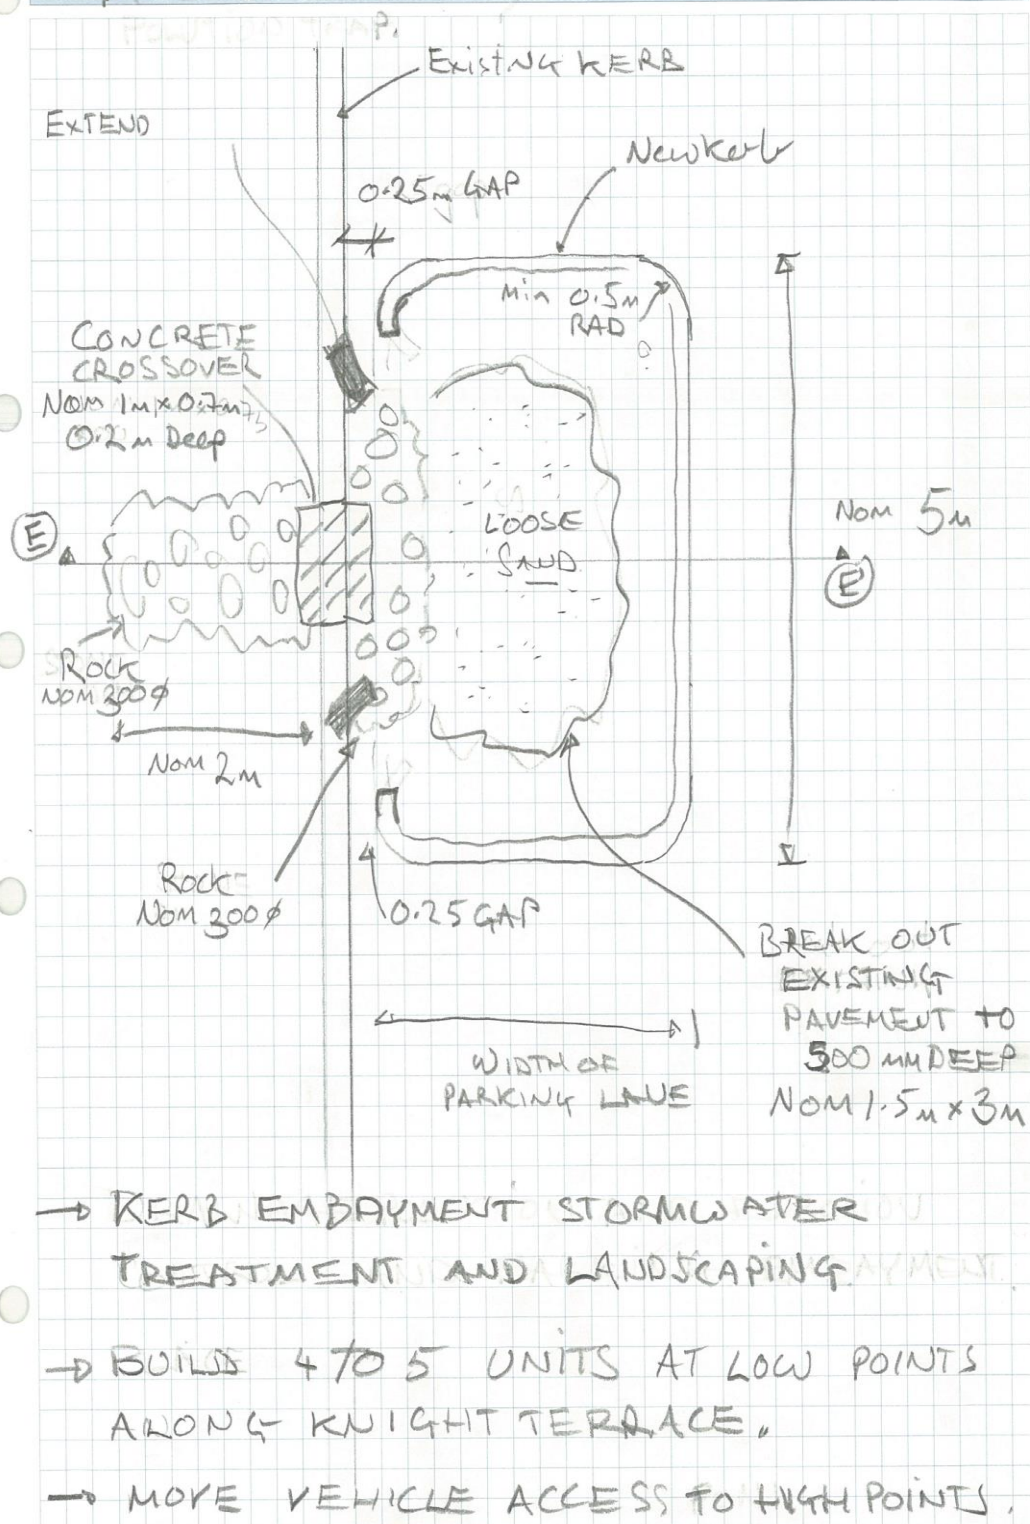 P.
Existing KERB
EXTEND
New Kerb
0.25m GAP
Min 0.5m
RAD
CONCRETE
CROSSOVER
NOM 1m x 0.7m
0.2m Deep
LOOSE
SAND
E
Nom 5m
E
ROCK
NOM 300ϕ
Nom 2m
ROCK
NOM 300ϕ
0.25 GAP
BREAK OUT
EXISTING
PAVEMENT TO
500 MM DEEP
NOM 1.5m x 3m
WIDTH OF
PARKING LANE
→ KERB EMBAYMENT STORMWATER
TREATMENT AND LANDSCAPING
→ BUILD 4 TO 5 UNITS AT LOW POINTS
ALONG KNIGHT TERRACE.
→ MOVE VEHICLE ACCESS TO HIGH POINTS.